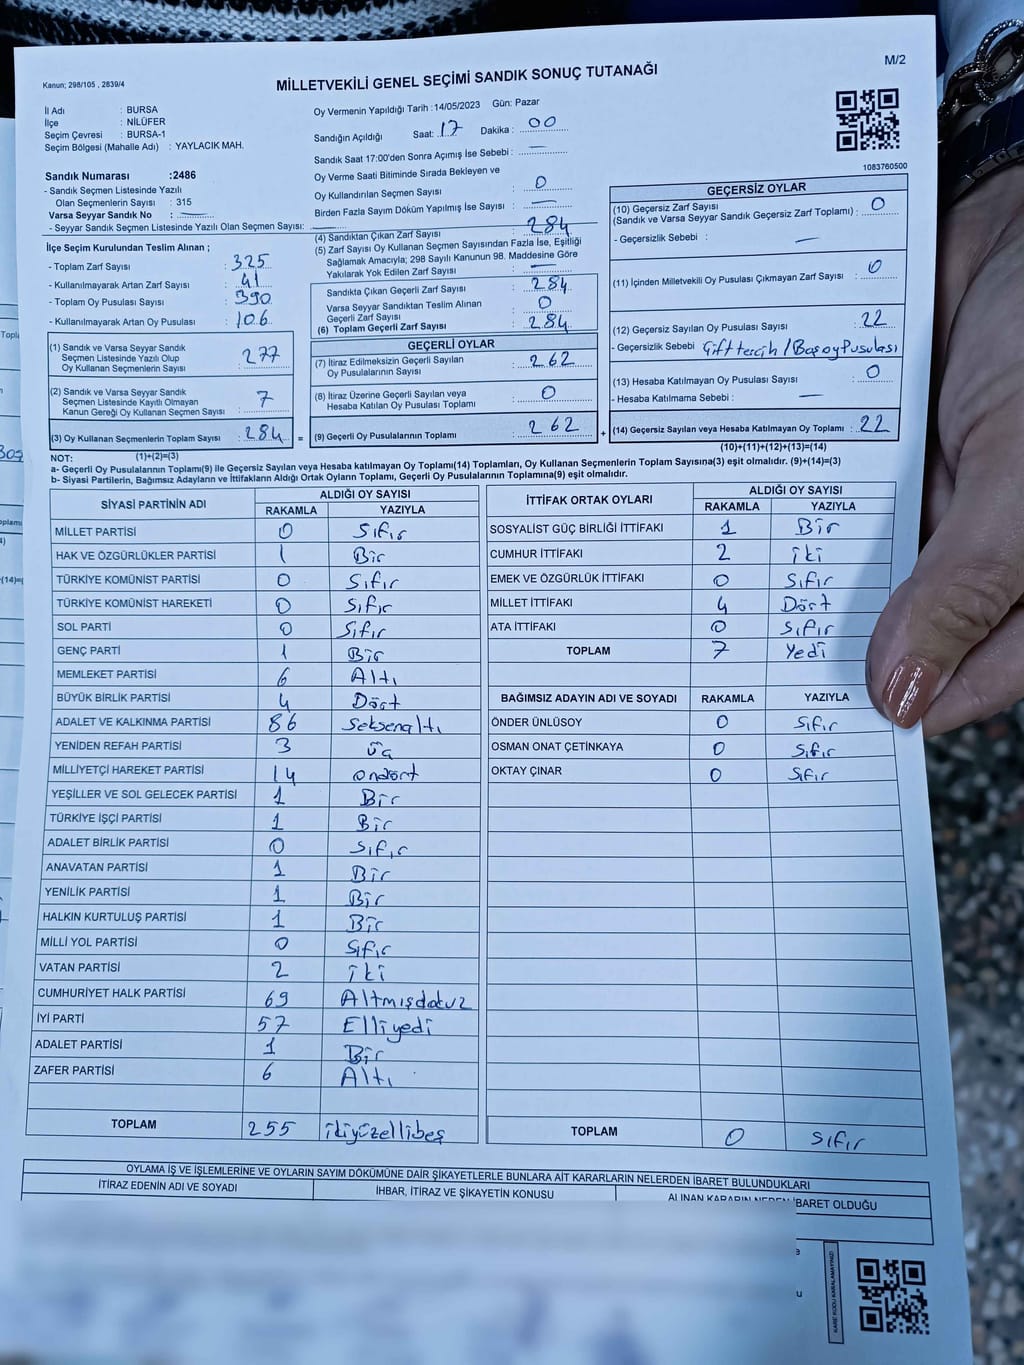 M/2
Kanun; 298/105 , 2839/4
MİLLETVEKİLİ GENEL SEÇİMİ SANDIK SONUÇ TUTANAĞI
İl Adı : BURSA
İlçe : NİLÜFER
Seçim Çevresi : BURSA-1
Seçim Bölgesi (Mahalle Adı) : YAYLACIK MAH.
Sandık Numarası :2486
- Sandık Seçmen Listesinde Yazılı
Olan Seçmenlerin Sayısı : 315
Varsa Seyyar Sandık No :
- Seyyar Sandık Seçmen Listesinde Yazılı Olan Seçmen Sayısı:
İlçe Seçim Kurulundan Teslim Alınan ;
- Toplam Zarf Sayısı : 325
- Kullanılmayarak Artan Zarf Sayısı : 41
- Toplam Oy Pusulası Sayısı : 390
- Kullanılmayarak Artan Oy Pusulası : 106
(1) Sandık ve Varsa Seyyar Sandık
Seçmen Listesinde Yazılı Olup
Oy Kullanan Seçmenlerin Sayısı : 277
(2) Sandık ve Varsa Seyyar Sandık
Seçmen Listesinde Kayıtlı Olmayan
Kanun Gereği Oy Kullanan Seçmen Sayısı : 7
(3) Oy Kullanan Seçmenlerin Toplam Sayısı : 284 =
Oy Vermenin Yapıldığı Tarih :14/05/2023 Gün: Pazar
Sandığın Açıldığı Saat: 17 Dakika : 00
Sandık Saat 17:00'den Sonra Açımış İse Sebebi : —
Oy Verme Saati Bitiminde Sırada Bekleyen ve
Oy Kullandırılan Seçmen Sayısı : 0
Birden Fazla Sayım Döküm Yapılmış İse Sayısı : —
(4) Sandıktan Çıkan Zarf Sayısı : 284
(5) Zarf Sayısı Oy Kullanan Seçmen Sayısından Fazla İse, Eşitliği
Sağlamak Amacıyla; 298 Sayılı Kanunun 98. Maddesine Göre
Yakılarak Yok Edilen Zarf Sayısı : —
Sandıkta Çıkan Geçerli Zarf Sayısı : 284
Varsa Seyyar Sandıktan Teslim Alınan
Geçerli Zarf Sayısı : 0
(6) Toplam Geçerli Zarf Sayısı : 284
GEÇERLİ OYLAR
(7) İtiraz Edilmeksizin Geçerli Sayılan
Oy Pusulalarının Sayısı : 262
(8) İtiraz Üzerine Geçerli Sayılan veya
Hesaba Katılan Oy Pusulası Toplamı : 0
(9) Geçerli Oy Pusulalarının Toplamı : 262 +
1083760500
GEÇERSİZ OYLAR
(10) Geçersiz Zarf Sayısı
(Sandık ve Varsa Seyyar Sandık Geçersiz Zarf Toplamı) : 0
- Geçersizlik Sebebi : —
(11) İçinden Milletvekili Oy Pusulası Çıkmayan Zarf Sayısı : 0
(12) Geçersiz Sayılan Oy Pusulası Sayısı : 22
- Geçersizlik Sebebi Çift tercih / Boş oy Pusulası
(13) Hesaba Katılmayan Oy Pusulası Sayısı : 0
- Hesaba Katılmama Sebebi : —
(14) Geçersiz Sayılan veya Hesaba Katılmayan Oy Toplamı : 22
NOT: (1)+(2)=(3)
(10)+(11)+(12)+(13)=(14)
a- Geçerli Oy Pusulalarının Toplamı(9) ile Geçersiz Sayılan veya Hesaba katılmayan Oy Toplamı(14) Toplamları, Oy Kullanan Seçmenlerin Toplam Sayısına(3) eşit olmalıdır. (9)+(14)=(3)
b- Siyasi Partilerin, Bağımsız Adayların ve İttifakların Aldığı Ortak Oyların Toplamı, Geçerli Oy Pusulalarının Toplamına(9) eşit olmalıdır.
SİYASİ PARTİNİN ADI ALDIĞI OY SAYISI
RAKAMLA YAZIYLA
MİLLET PARTİSİ 0 Sıfır
HAK VE ÖZGÜRLÜKLER PARTİSİ 1 Bir
TÜRKİYE KOMÜNİST PARTİSİ 0 Sıfır
TÜRKİYE KOMÜNİST HAREKETİ 0 Sıfır
SOL PARTİ 0 Sıfır
GENÇ PARTİ 1 Bir
MEMLEKET PARTİSİ 6 Altı
BÜYÜK BİRLİK PARTİSİ 4 Dört
ADALET VE KALKINMA PARTİSİ 86 Seksenaltı
YENİDEN REFAH PARTİSİ 3 üç
MİLLİYETÇİ HAREKET PARTİSİ 14 ondört
YEŞİLLER VE SOL GELECEK PARTİSİ 1 Bir
TÜRKİYE İŞÇİ PARTİSİ 1 Bir
ADALET BİRLİK PARTİSİ 0 Sıfır
ANAVATAN PARTİSİ 1 Bir
YENİLİK PARTİSİ 1 Bir
HALKIN KURTULUŞ PARTİSİ 1 Bir
MİLLİ YOL PARTİSİ 0 Sıfır
VATAN PARTİSİ 2 iki
CUMHURİYET HALK PARTİSİ 69 Altmışdokuz
İYİ PARTİ 57 Elliyedi
ADALET PARTİSİ 1 Bir
ZAFER PARTİSİ 6 Altı
TOPLAM 255 ikiyüzellibeş
İTTİFAK ORTAK OYLARI ALDIĞI OY SAYISI
RAKAMLA YAZIYLA
SOSYALİST GÜÇ BİRLİĞİ İTTİFAKI 1 Bir
CUMHUR İTTİFAKI 2 iki
EMEK VE ÖZGÜRLÜK İTTİFAKI 0 Sıfır
MİLLET İTTİFAKI 4 Dört
ATA İTTİFAKI 0 Sıfır
TOPLAM 7 Yedi
BAĞIMSIZ ADAYIN ADI VE SOYADI RAKAMLA YAZIYLA
ÖNDER ÜNLÜSOY 0 Sıfır
OSMAN ONAT ÇETİNKAYA 0 Sıfır
OKTAY ÇINAR 0 Sıfır
TOPLAM 0 Sıfır
OYLAMA İŞ VE İŞLEMLERİNE VE OYLARIN SAYIM DÖKÜMÜNE DAİR ŞİKAYETLERLE BUNLARA AİT KARARLARIN NELERDEN İBARET BULUNDUKLARI
İTİRAZ EDENİN ADI VE SOYADI İHBAR, İTİRAZ VE ŞİKAYETİN KONUSU ALINAN KARARIN NEDEN İBARET OLDUĞU